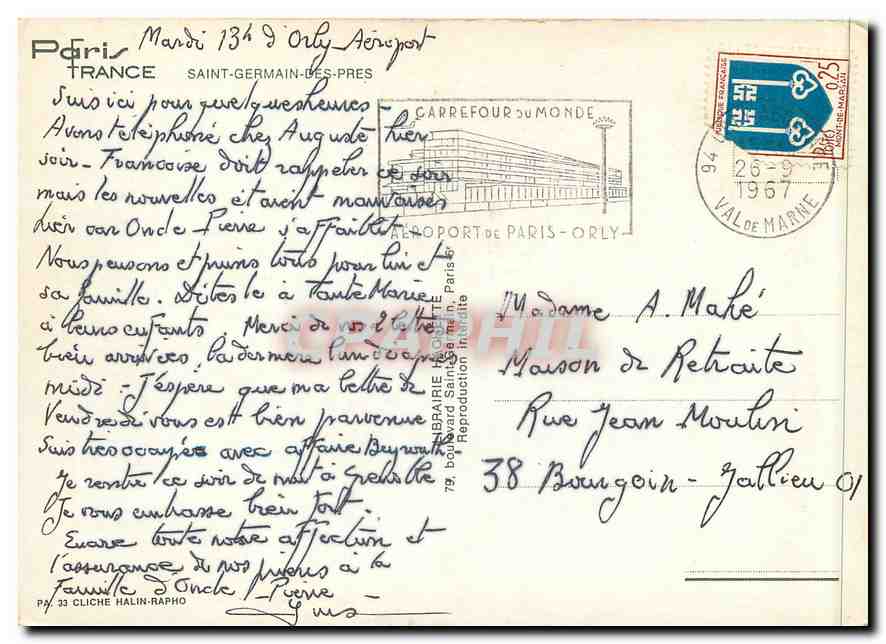 Paris
FRANCE
SAINT-GERMAIN-DES-PRES
Mardi 13h d'Orly-Aéroport
Suis ici pour quelques heures -
Avons téléphoné chez Auguste hier
soir - Françoise doit rappeler ce soir
mais les nouvelles étaient mauvaises
hier car Oncle Pierre s'affaiblit -
Nous pensons et prions tous pour lui et
sa famille. Dites le à Tante Marie
à leurs enfants. Merci de vos 2 lettres
bien arrivées, la dernière lundi après
midi - J'espère que ma lettre de
Vendredi vous est bien parvenue
Suis très occupée avec affaire Beyrouth
Je rentre ce soir de nuit à Grenoble
Je vous embrasse bien fort.
Encore toute notre affection et
l'assurance de nos prières à la
famille d'Oncle Pierre
PA. 33 CLICHE HALIN-RAPHO
LIBRAIRIE HUNE
79, boulevard Saint-Germain, Paris-6e
Reproduction interdite
CARREFOUR DU MONDE
AÉROPORT DE PARIS - ORLY
94
26-9
1967
VAL DE MARNE
REPUBLIQUE FRANÇAISE
0,25
POSTES
MONT-DE-MARSAN
Madame A. Mahé
Maison de Retraite
Rue Jean Moulin
38 Bourgoin - Jallieu 01
CPAPHIL